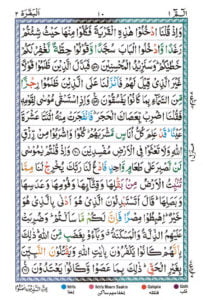 البقرة ٢ ١٠ الٓمّٓ ١
وَاِذْ قُلْنَا ادْخُلُوْا هٰذِهِ الْقَرْيَةَ فَكُلُوْا مِنْهَا حَيْثُ شِئْتُمْ
رَغَدًا وَّادْخُلُوا الْبَابَ سُجَّدًا وَّقُوْلُوْا حِطَّةٌ نَّغْفِرْ لَكُمْ
خَطٰيٰكُمْ وَسَنَزِيْدُ الْمُحْسِنِيْنَ فَبَدَّلَ الَّذِيْنَ ظَلَمُوْا قَوْلًا
غَيْرَ الَّذِيْ قِيْلَ لَهُمْ فَاَنْزَلْنَا عَلَى الَّذِيْنَ ظَلَمُوْا رِجْزًا
مِّنَ السَّمَآءِ بِمَا كَانُوْا يَفْسُقُوْنَ وَاِذِ اسْتَسْقٰى مُوْسٰى لِقَوْمِهٖ
فَقُلْنَا اضْرِبْ بِّعَصَاكَ الْحَجَرَ فَانْفَجَرَتْ مِنْهُ اثْنَتَا عَشْرَةَ
عَيْنًا قَدْ عَلِمَ كُلُّ اُنَاسٍ مَّشْرَبَهُمْ كُلُوْا وَاشْرَبُوْا مِنْ رِّزْقِ
اللّٰهِ وَلَا تَعْثَوْا فِى الْاَرْضِ مُفْسِدِيْنَ وَاِذْ قُلْتُمْ يٰمُوْسٰى
لَنْ نَّصْبِرَ عَلٰى طَعَامٍ وَّاحِدٍ فَادْعُ لَنَا رَبَّكَ يُخْرِجْ لَنَا مِمَّا
تُنْۢبِتُ الْاَرْضُ مِنْۢ بَقْلِهَا وَقِثَّآئِهَا وَفُوْمِهَا وَعَدَسِهَا
وَبَصَلِهَا قَالَ اَتَسْتَبْدِلُوْنَ الَّذِيْ هُوَ اَدْنٰى بِالَّذِيْ هُوَ
خَيْرٌ اِهْبِطُوْا مِصْرًا فَاِنَّ لَكُمْ مَّا سَاَلْتُمْ وَضُرِبَتْ
عَلَيْهِمُ الذِّلَّةُ وَالْمَسْكَنَةُ وَبَآءُوْ بِغَضَبٍ مِّنَ اللّٰهِ ذٰلِكَ
بِاَنَّهُمْ كَانُوْا يَكْفُرُوْنَ بِاٰيٰتِ اللّٰهِ وَيَقْتُلُوْنَ النَّبِيّٖنَ
بِغَيْرِ الْحَقِّ ذٰلِكَ بِمَا عَصَوْا وَّكَانُوْا يَعْتَدُوْنَ